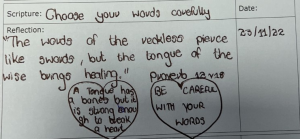 Scripture: Choose your words carefully
Date:
Reflection:
23/11/22
"The words of the reckless pierce
like swords, but the tongue of the
wise brings healing."
Proverb 12 v 18
A Tongue has
no bones but it
is strong enou
gh to break
a heart
BE CAREFUL
WITH YOUR
WORDS